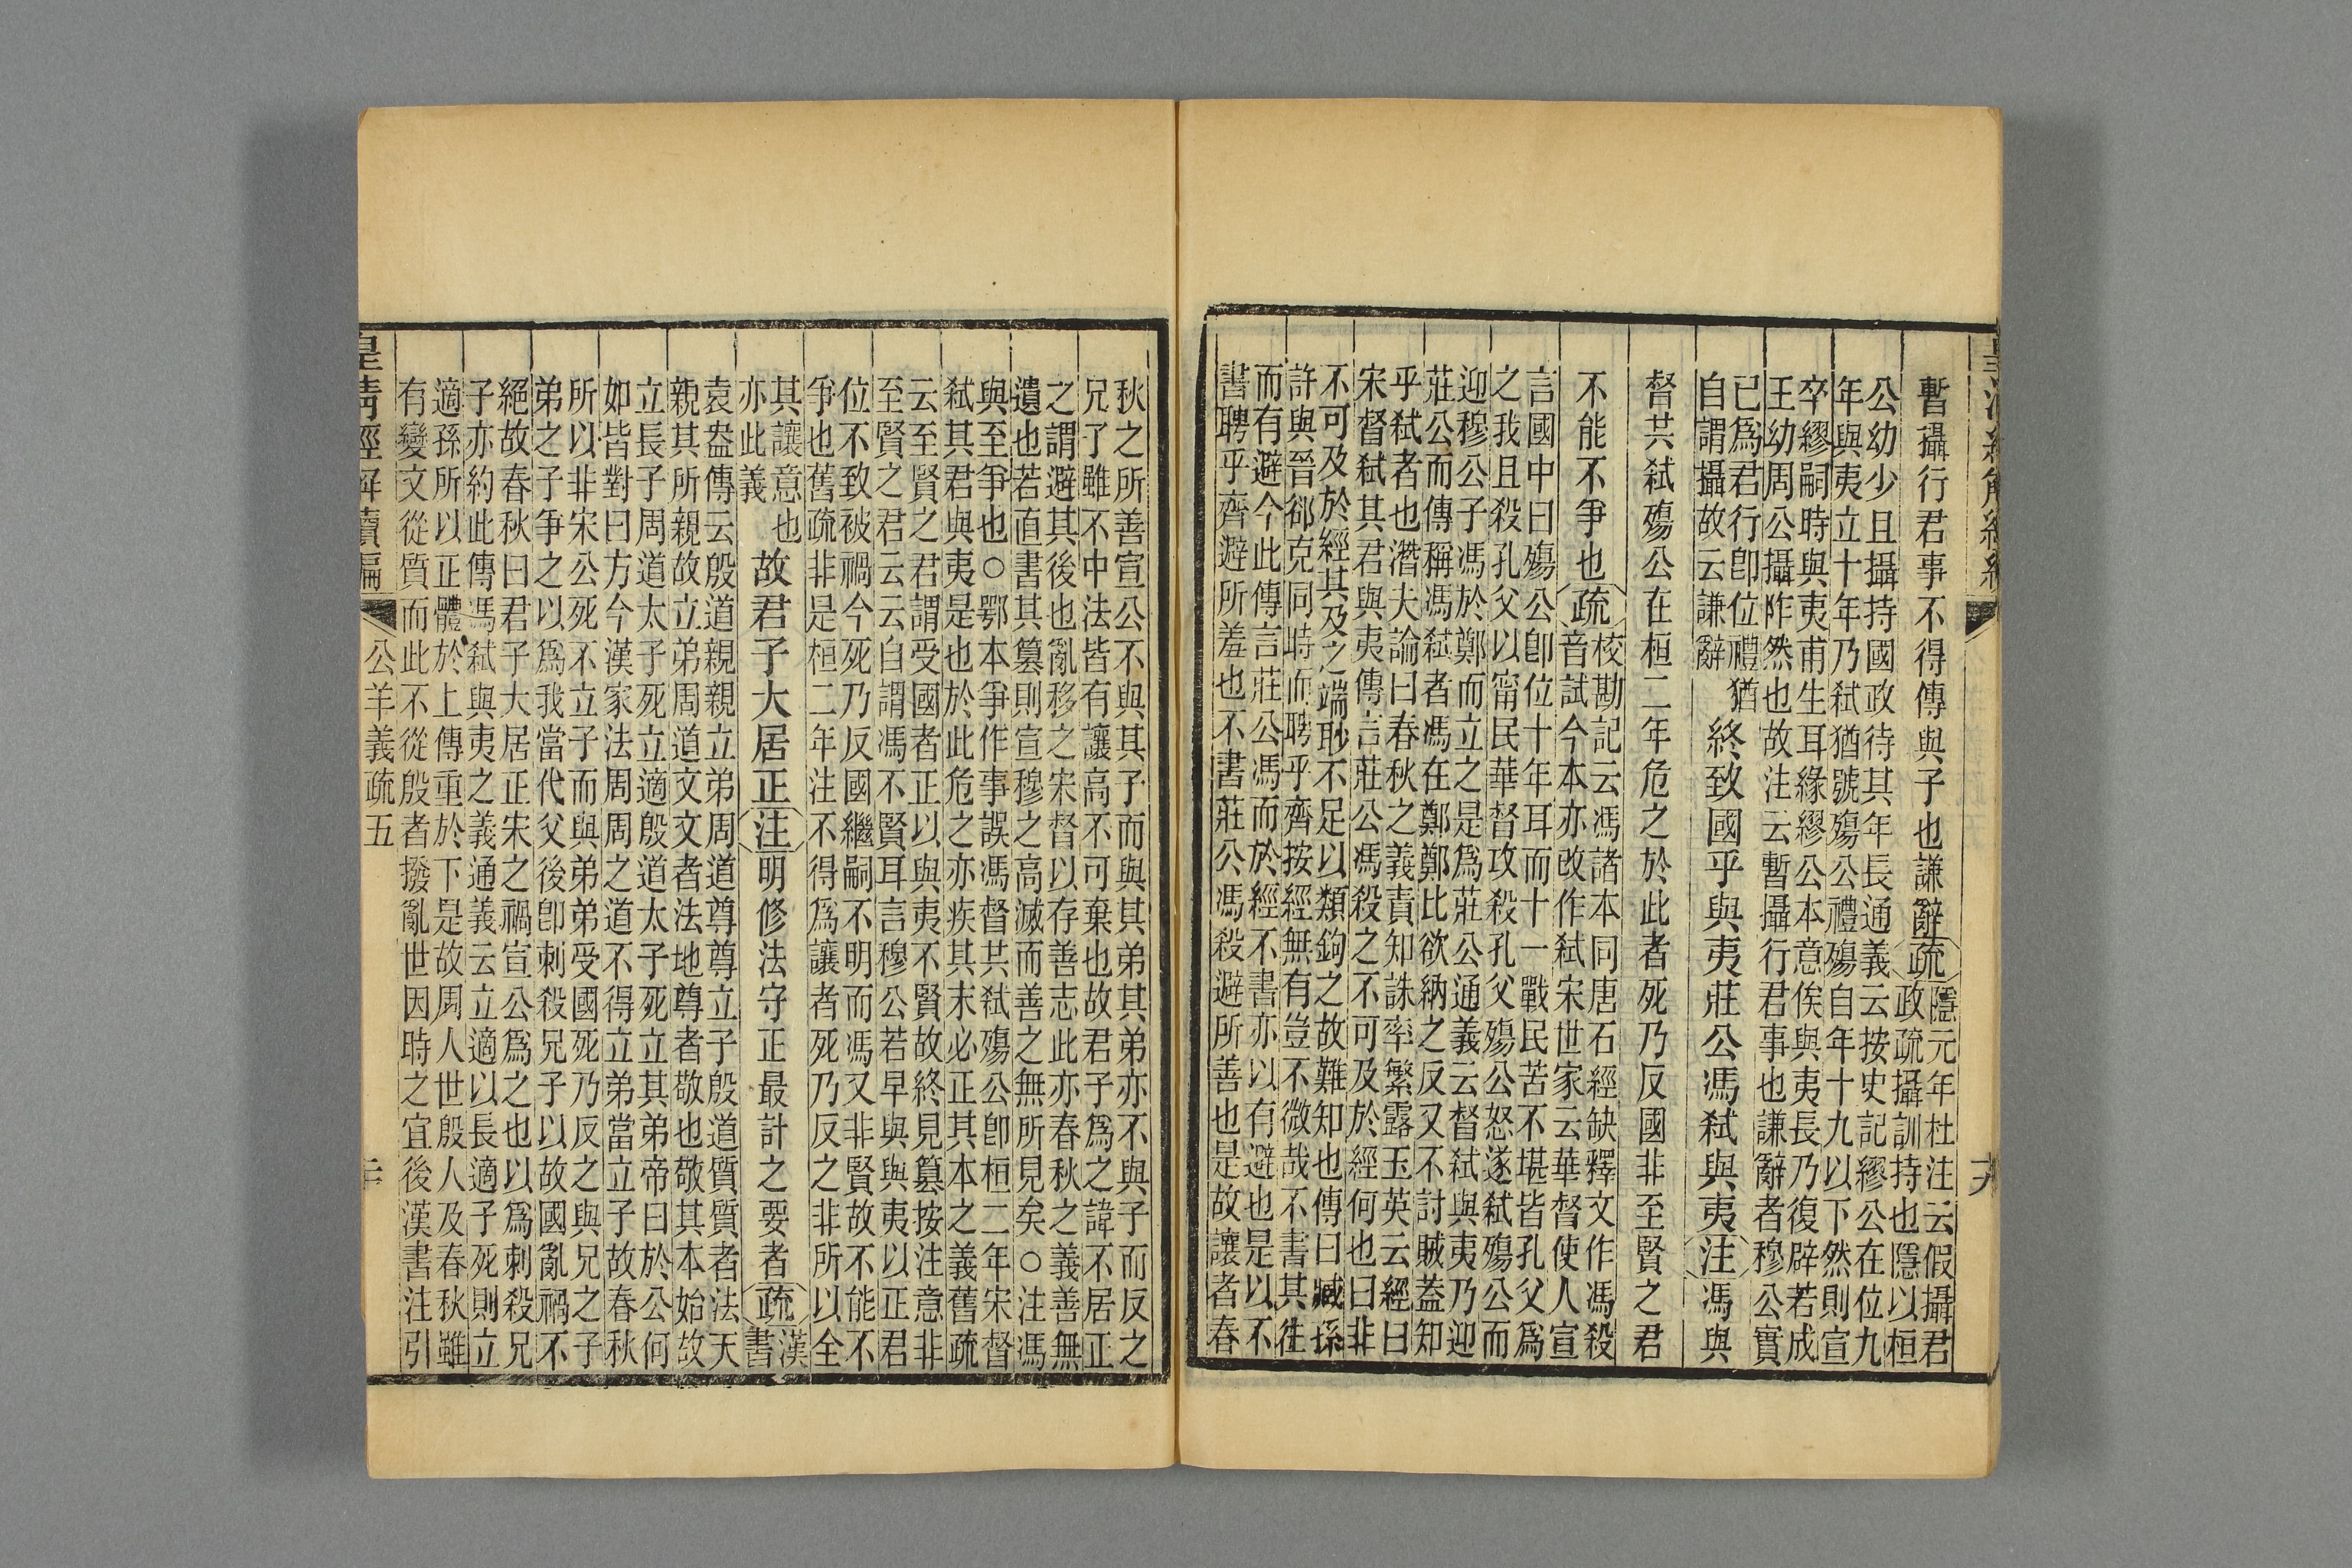 暫攝行君事不得傳與子也謙辭疏隱元年杜注云假攝君
政疏攝訓持也隱以桓
公幼少且攝持國政待其年長通義云按史記繆公在位九
年與夷立十年乃弑猶號殤公禮殤自年十九以下然則宣
卒繆嗣時與夷甫生耳緣繆公本意俟與夷長乃復辟若成
王幼周公攝阼然也故注云暫攝行君事也謙辭者穆公實
已爲君行卽位禮猶
自謂攝故云謙辭
終致國乎與夷莊公馮弑與夷注馮與
督共弑殤公在桓二年危之於此者死乃反國非至賢之君
不能不爭也疏校勘記云馮諸本同唐石經缺釋文作馮殺
音試今本亦改作弑宋世家云華督使人宣
言國中曰殤公卽位十年耳而十一戰民苦不堪皆孔父爲
之我且殺孔父以甯民華督攻殺孔父殤公怒遂弑殤公而
迎穆公子馮於鄭而立之是爲莊公通義云督弑與夷乃迎
莊公而傳稱馮弑者馮在鄭鄭比欲納之反又不討賊蓋知
乎弑者也潛夫論曰春秋之義責知誅率繁露玉英云經曰
宋督弑其君與夷傳言莊公馮殺之不可及於經何也曰非
不可及於經其及之端眇不足以類鉤之故難知也傳曰臧孫
許與晉郤克同時而聘乎齊按經無有豈不微哉不書其往
而有避今此傳言莊公馮而於經不書亦以有避也是以不
書聘乎齊避所羞也不書莊公馮殺避所善也是故讓者春
秋之所善宣公不與其子而與其弟其弟亦不與子而反之
兄子雖不中法皆有讓高不可棄也故君子爲之諱不居正
之謂避其後也亂移之宋督以存善志此亦春秋之義善無
遺也若直書其篡則宣穆之高滅而善之無所見矣○注馮
與至爭也○鄂本爭作事誤馮督共弑殤公卽桓二年宋督
弑其君與夷是也於此危之亦疾其末必正其本之義舊疏
云至賢之君謂受國者正以與夷不賢故終見篡按注意非
至賢之君云云自謂馮不賢耳言穆公若早與與夷以正君
位不致被禍今死乃反國繼嗣不明而馮又非賢故不能不
爭也舊疏非是桓二年注不得爲讓者死乃反之非所以全
其讓意也
亦此義
故君子大居正注明修法守正最計之要者疏漢
書
袁盎傳云殷道親親立弟周道尊尊立子殷道質質者法天
親其所親故立弟周道文文者法地尊者敬也敬其本始故
立長子周道太子死立適殷道太子死立其弟帝曰於公何
如皆對曰方今漢家法周周之道不得立弟當立子故春秋
所以非宋公死不立子而與弟弟受國死乃反之與兄之子
弟之子爭之以爲我當代父後卽刺殺兄子以故國亂禍不
絕故春秋曰君子大居正宋之禍宣公爲之也以爲刺殺兄
子亦約此傳馮弑與夷之義通義云立適以長適子死則立
適孫所以正體於上傳重於下是故周人世殷人及春秋雖
有變文從質而此不從殷者撥亂世因時之宜後漢書注引
皇清經解續編
公羊義疏五